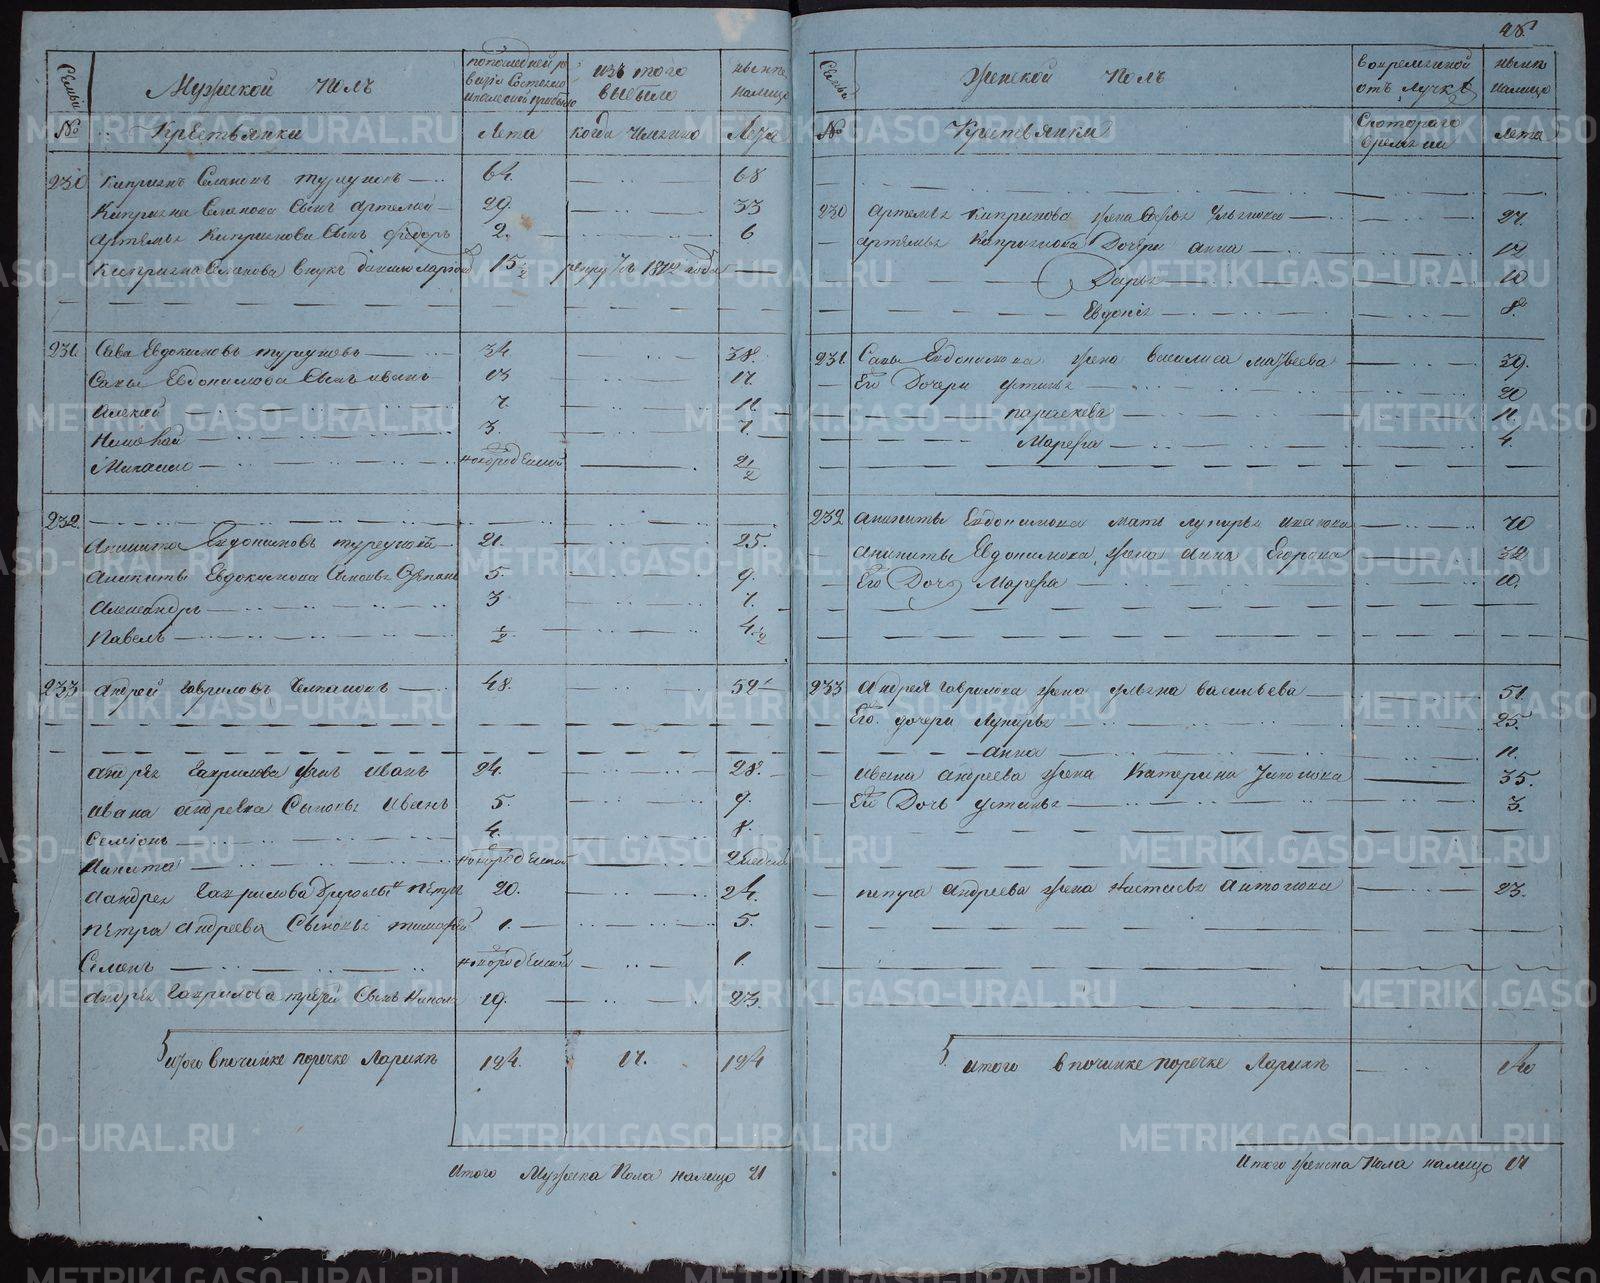 28
Семьи
Мужеской полъ
по последней ре
визiи состояло
и после оной прибыло
изъ того
выбыло
ныне
налицо
№
Крестьянки
Лета
когда именно
Лета
230 Киприянъ Селановъ 64. 68
сынъ Артемей 29 33
сынъ Федоръ 2. 6
внукъ 15 1/2 1812 года
231. Сава Евдокимовъ 34 38.
Савы Евдокимова сынъ Иванъ 13 17.
Алексей 7. 11.
Николай 3. 7.
Михаило новорожденной 2 1/2
232.
Аникита Евдокимовъ 21. 25.
Аникиты Евдокимова сыновья Степанъ 5. 9.
Александръ 3 7.
Павелъ 1/2 4 1/2
233 Андрей Гавриловъ 48. 52
Андрея Гаврилова сынъ Иванъ 24. 28.
Ивана Андреева сыновья Иванъ 5. 9.
Семiонъ 4. 8.
Никита новорожденной 2 недели
Андрея Гаврилова другой сынъ Петръ 20. 24.
Петра Андреева сыновья Тимофей 1. 5.
новорожденной 1.
Андрея Гаврилова третей сынъ 19. 23.
Итого в починке поречке Ларихъ 124. 17. 124
Итого мужеска пола налицо 21
Семьи
Женской полъ
во временной
отлучке
ныне
налицо
№
Крестьянки
С котораго
времени
Лета
230 Артемья Киприянова жена 27.
Артемья Киприянова дочери Анна 12
Дарья 10
Евдокiя 8.
231. Савы Евдокимова жена Василиса Матвеева 39.
Его дочери Устинья 20
11
Марфа 4.
232 Аникиты Евдокимова мать Лукерья Иванова 70
Аникиты Евдокимова жена Анна Егорова 32
Его дочь Марфа 10.
233 Андрея Гаврилова жена Ульяна Васильева 51.
Его дочери Лукерья 25.
Анна 11.
Ивана Андреева жена Катерина 35.
Его дочь Устинья 3.
Петра Андреева жена Настасья Антонова 23.
Итого в починке поречке Ларихъ
Итого женска пола налицо 17
METRIKI.GASO-URAL.RU